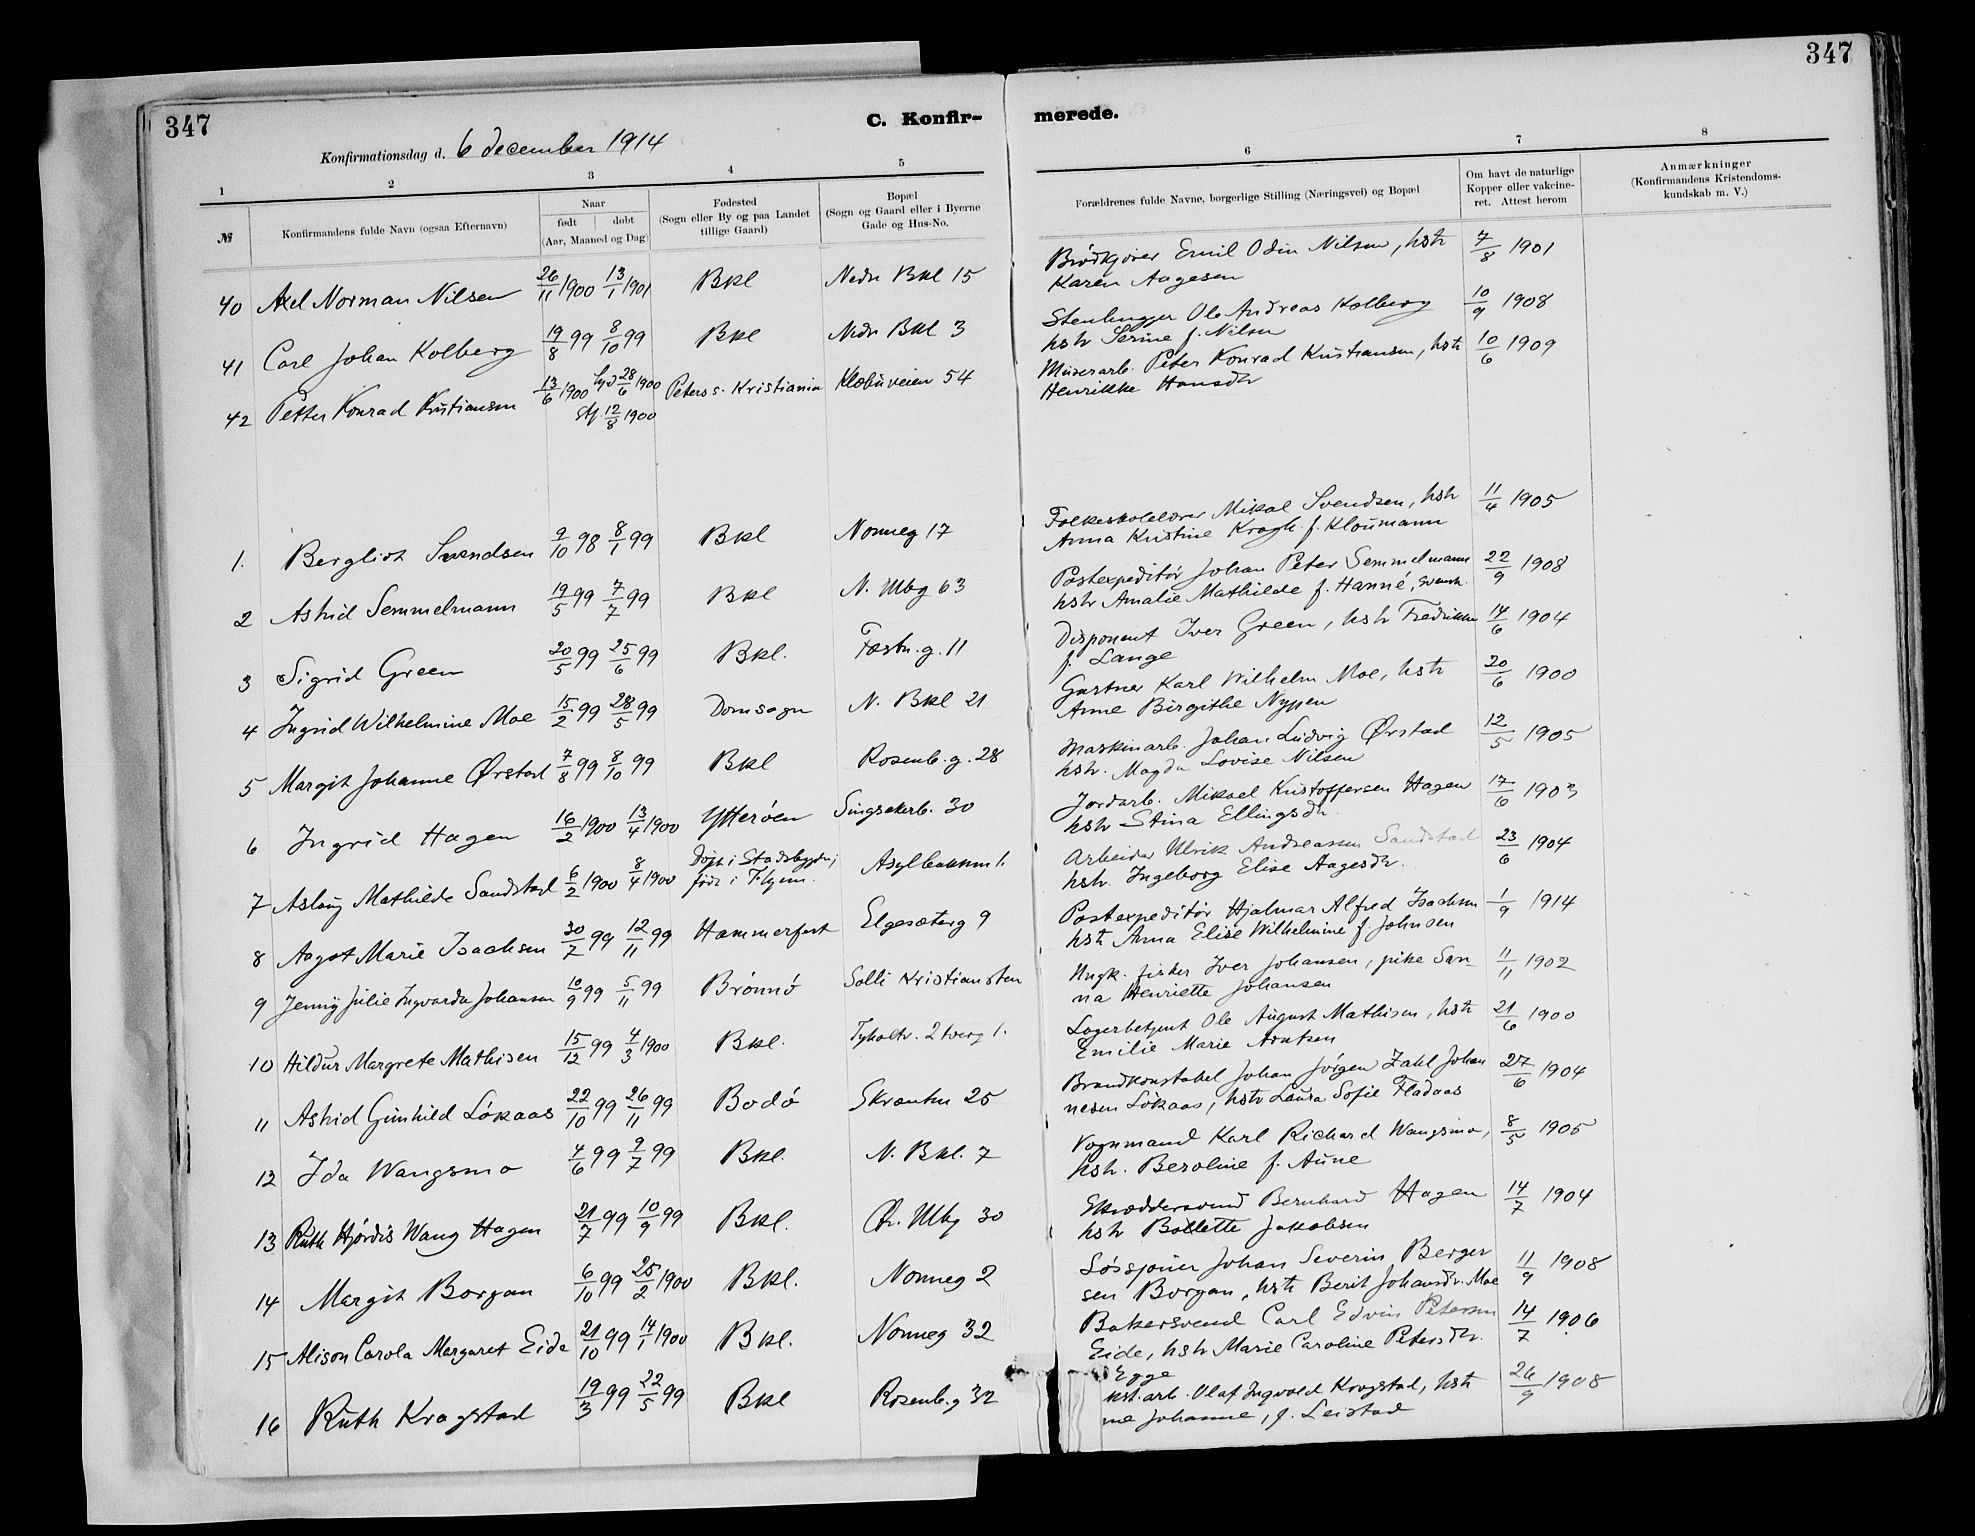 347
347
C. Konfir-
merede.
Konfirmationsdag d. 6 december 1914
1 2 3 4 5 6 7 8
№
Konfirmandens fulde Navn (ogsaa Efternavn)
Naar
født døbt
(Aar, Maaned og Dag)
Fødested
(Sogn eller By og paa Landet
tillige Gaard)
Bopæl
(Sogn og Gaard eller i Byerne
Gade og Hus-No.
Forældrenes fulde Navne, borgerlige Stilling (Næringsvei) og Bopæl
Om havt de naturlige
Kopper eller vakcine-
ret. Attest herom
Anmærkninger
(Konfirmandens Kristendoms-
kundskab m. V.)
40 Axel Norman Nilsen 26/11 1900 13/1 1901 Bkl Nedr Bkl 15 Brødkjører Emil Odin Nilsen, hstr 7/8 1901
Karen Aagesen
41 Carl Johan Kolberg 19/8 99 8/10 99 Bkl Nedr Bkl 3 Stenhugger Ole Andreas Kolberg 10/9 1908
hstr Serine f. Nilsen
42 Petter Konrad Kristiansen 13/6 1900 28/6 1900 Peters s. Kristiania Klæbuveien 54 Murerarb. Peter Konrad Kristiansen, hstr 10/6 1909
stf. 12/8 1900 Henrikke Hansdr
1. Bergliot Svendsen 9/10 98 8/1 99 Bkl Nonneg 17 Folkeskolelærer Mikal Svendsen, hstr 11/4 1905
Anna Kristine Kragh f. Kloumann
2 Astrid Semmelmann 19/5 99 7/7 99 Bkl N. Mbg 63 Postexpeditør Johan Peter Semmelmann 22/9 1908
hstr Amalie Mathilde f. Hanné, svensk.
3 Sigrid Green 20/5 99 25/6 99 Bkl. Festn.g. 11 Disponent Iver Green, hstr Fredrikke 14/6 1904
f. Lange
4 Ingrid Wilhelmine Moe 15/2 99 28/5 99 Domsogn N. Bkl 21 Gartner Karl Wilhelm Moe, hstr 20/6 1900
Anne Birgithe Nypen
5 Margit Johanne Ørstad 7/8 99 8/10 99 Bkl Rosenb.g. 28 Maskinarb. Johan Ludvig Ørstad 12/5 1905
hstr. Magda Lovise Nilsen
6 Ingrid Hagen 16/2 1900 13/4 1900 Ytterøen Singsakerb. 30 Jordarb. Mikael Kristoffersen Hagen 17/6 1903
hstr Stina Ellingsdr.
7 Aslaug Mathilde Sandstad 6/2 1900 8/4 1900 døpt i Stadsbygden; Asylbakken 1. Arbeider Ulrik Andreassen Sandstad 23/6 1904
født i Thjem. hstr. Ingeborg Elise Aagesdr.
8 Aagot Marie Isachsen 30/7 99 12/11 99 Hammerfest Elgesæterg 9 Postexpeditør Hjalmar Alfred Isachsen 1/9 1914
hstr Anna Elise Wilhelmine f. Johnsen
9 Jenny Julie Ingvarda Johansen 10/9 99 5/11 99 Brønnø Solli Kristiansten Ungk. fisker Iver Johansen, pike San- 11/11 1902
na Henriette Johansen
10 Hildur Margrete Mathisen 15/12 99 4/3 1900 Bkl. Tyholtv. 2 tverg 1. Lagerbetjent Ole August Mathisen, hstr 21/6 1900
Emilie Marie Arntzen
11 Astrid Gunhild Løkaas 22/10 99 26/11 99 Bodø Skrænten 25 Brandkonstabel Johan Jørgen Zahl Johan 27/6 1904
nesen Løkaas, hstr Laura Sofie Fladaas
12 Ida Wangsmo 4/6 99 2/7 99 Bkl. N. Bkl. 7 Vognmand Karl Richard Wangsmo, 8/5 1905
hstr. Beroline f. Aune
13 Ruth Hjørdis Wang Hagen 21/7 99 10/9 99 Bkl. Ø. Mbg 30 Skræddersvend Bernhard Hagen 14/7 1904
hstr Bollette Jakobsen
14 Margit Borgan 6/10 99 25/2 1900 Bkl. Nonneg 2 Løssjouer Johan Severin Berger 11/9 1908
sen Borgan, hstr Berit Johansdr. Moe
15 Alison Carola Margaret Eide 21/10 99 14/1 1900 Bkl. Nonneg 32 Bakersvend Carl Edvin Petersen 14/7 1906
Eide, hstr Marie Caroline Petersdr.
Egge
16 Ruth Kragstad 19/3 99 22/5 99 Bkl Rosenb.g 32 arb. Olaf Ingvald Kragstad, hstr 26/9 1908
ne Johanne, f. Leistad